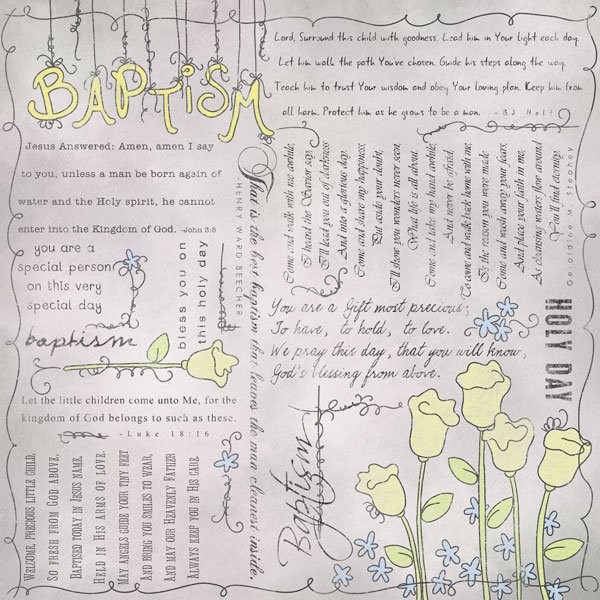 BAPTiSM
Lord, Surround this child with goodness. Lead him in Your light each day.
Let him walk the path You've chosen. Guide his steps along the way.
Teach him to trust Your wisdom and obey Your loving plan. Keep him from
all harm. Protect him as he grows to be a man. - BJ Hoff
Jesus Answered: Amen, amen I say
to you, unless a man be born again of
water and the Holy spirit, he cannot
enter into the Kingdom of God. -John 3:5
you are a
special person
on this very
special day
bless you on
this holy day
That is the best baptism that leaves the man cleanest inside.
HENRY WARD BEECHER
Come and walk with me awhile,
I heard the Savior say,
I'll lead you out of darkness
And into a glorious day.
Come and share my happiness,
Put aside your doubt,
I'll show you wonders never seen,
What life is all about.
Come and take my hand awhile,
And never be afraid,
To come and walk back home with me,
Is the reason you were made
Come and wash away your fears,
And place your faith in me,
As cleansing waters flow around
You'll find eternity.
Geraldine M. Stephey
baptism
You are a Gift most precious;
To have, to hold, to love.
We pray this day, that you will know,
God's blessing from above.
HOLY DAY
Let the little children come unto Me, for the
kingdom of God belongs to such as these.
-Luke 18:16
Welcome, precious little child,
So fresh from God above,
Baptised today in Jesus name,
Held in His arms of love.
May angels guide your tiny feet
And bring you smiles to wear,
And may our Heavenly Father
Always keep you in His care
Baptism